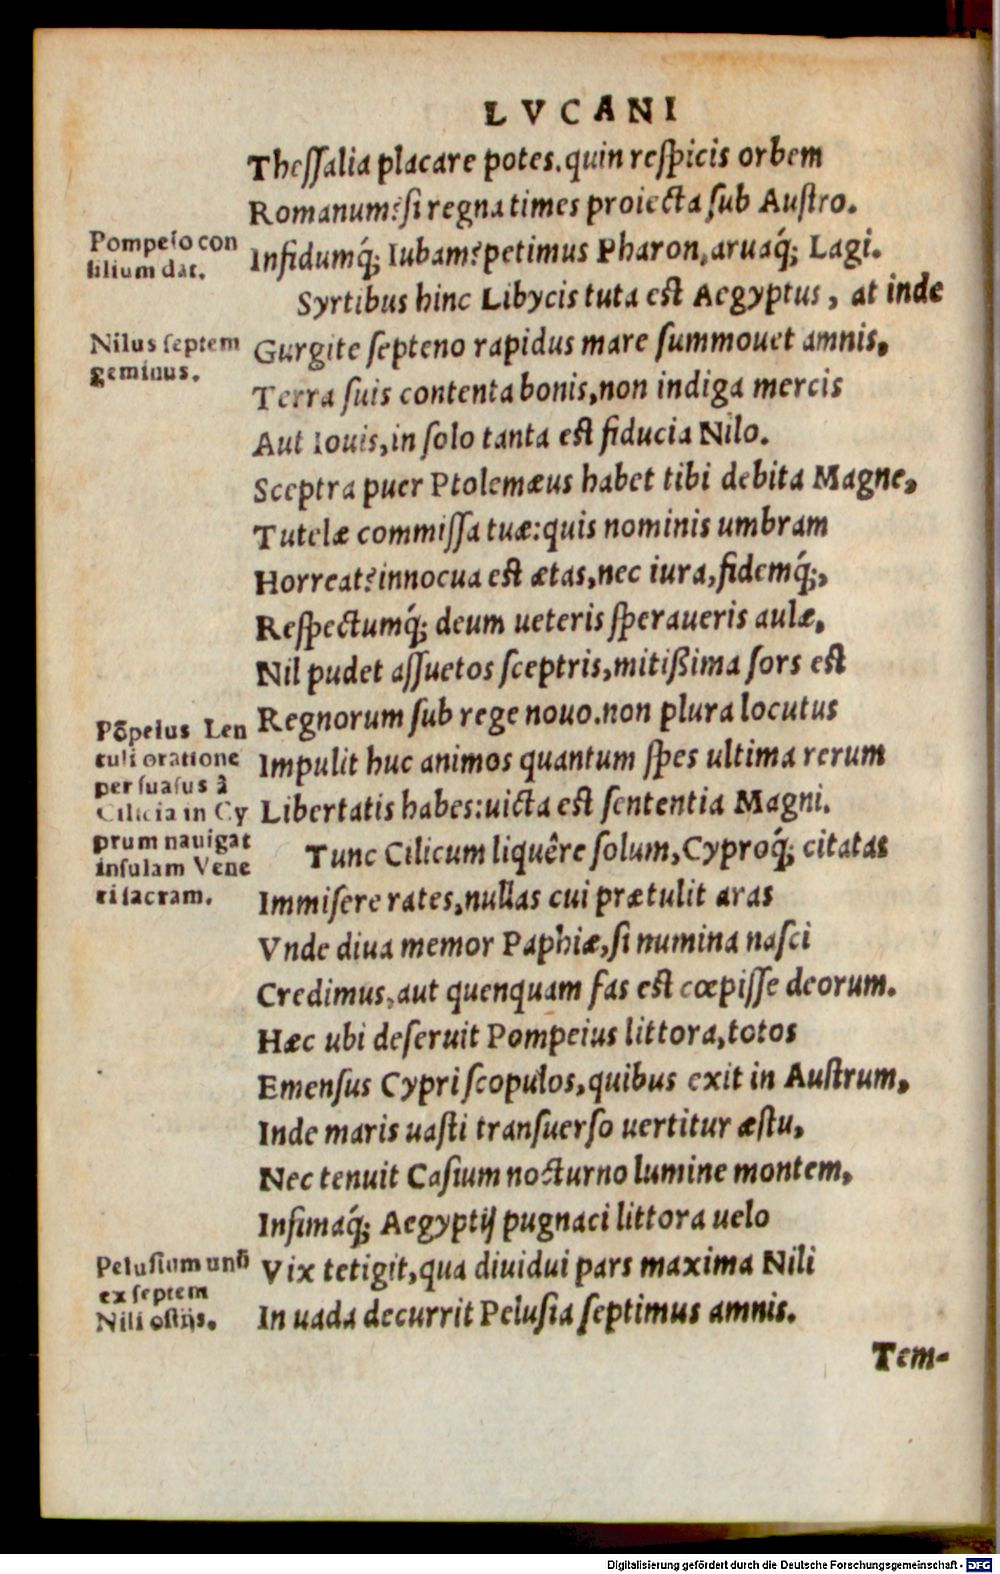 LVCANI
Theſſalia placare potes. quin reſpicis orbem
Romanum? ſi regna times proiecta ſub Auſtro.
Pompeio con
ſilium dat.
Infidumq́; Iubam? petimus Pharon, aruaq́; Lagi.
Syrtibus hinc Libycis tuta eſt Aegyptus, at inde
Nilus ſeptem
geminus.
Gurgite ſepteno rapidus mare ſummouet amnis,
Terra ſuis contenta bonis, non indiga mercis
Aut Iouis, in ſolo tanta eſt fiducia Nilo.
Sceptra puer Ptolemæus habet tibi debita Magne,
Tutelæ commiſſa tuæ: quis nominis umbram
Horreat? innocua eſt ætas, nec iura, fidemq́;,
Reſpectumq́; deum ueteris ſperaueris aulæ,
Nil pudet aſſuetos ſceptris, mitißima ſors eſt
Regnorum ſub rege nouo. non plura locutus
Põpeius Len
tuli oratione
perſuaſus à
Cilicia in Cy
prum nauigat
inſulam Vene
ri ſacram.
Impulit huc animos quantum ſpes ultima rerum
Libertatis habes: uicta eſt ſententia Magni.
Tunc Cilicum liquêre ſolum, Cyproq́; citatas
Immiſere rates, nullas cui prætulit aras
Vnde diua memor Paphiæ, ſi numina naſci
Credimus, aut quenquam fas eſt cœpiſſe deorum.
Hæc ubi deſeruit Pompeius littora, totos
Emenſus Cypri ſcopulos, quibus exit in Auſtrum,
Inde maris uaſti tranſuerſo uertitur æſtu,
Nec tenuit Caſium nocturno lumine montem,
Infimaq́; Aegyptij pugnaci littora uelo
Peluſium unũ
ex ſeptem
Nili oſtijs.
Vix tetigit, qua diuidui pars maxima Nili
In uada decurrit Peluſia ſeptimus amnis.
Tem-
Digitalisierung gefördert durch die Deutsche Forschungsgemeinschaft - DFG